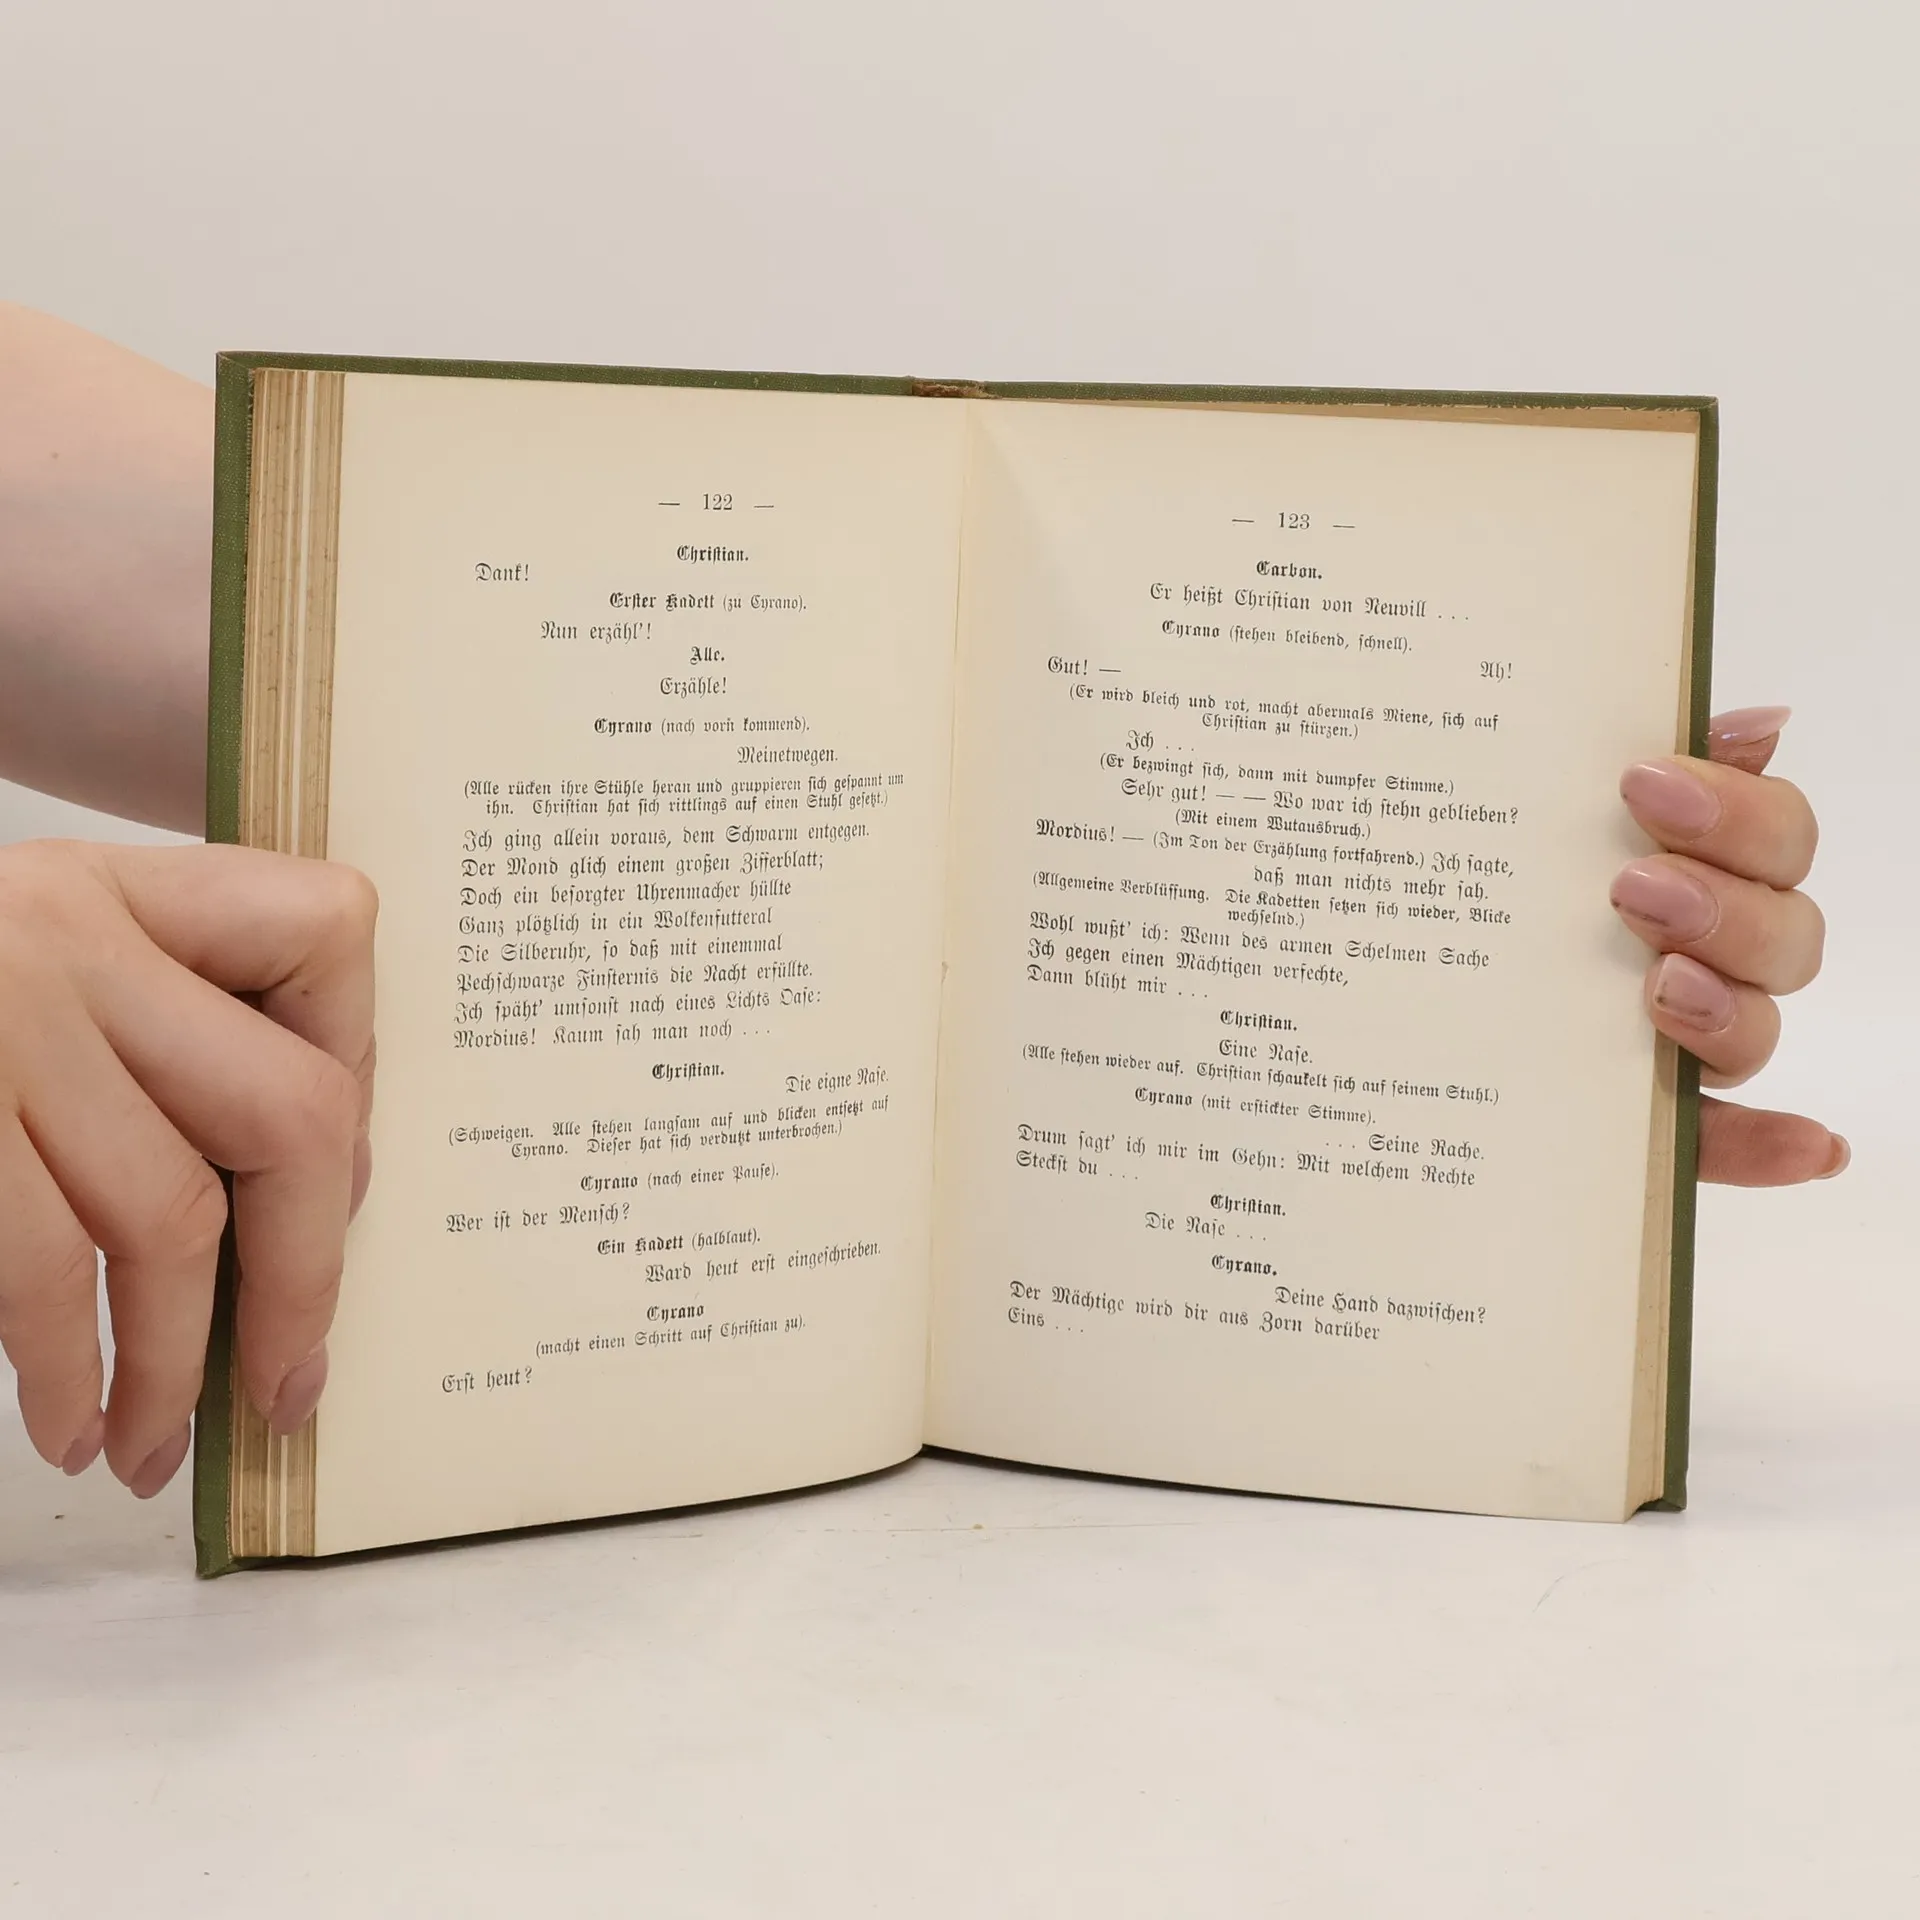 — 122 —
Christian.
Dank!
Erster Kadett (zu Cyrano).
Nun erzähl'!
Alle.
Erzähle!
Cyrano (nach vorn kommend).
Meinetwegen.
(Alle rücken ihre Stühle heran und gruppieren sich gespannt um
ihn. Christian hat sich rittlings auf einen Stuhl gesetzt.)
Ich ging allein voraus, dem Schwarm entgegen.
Der Mond glich einem großen Zifferblatt;
Doch ein besorgter Uhrenmacher hüllte
Ganz plötzlich in ein Wolkenfutteral
Die Silberuhr, so daß mit einemmal
Pechschwarze Finsternis die Nacht erfüllte.
Ich späht' umsonst nach eines Lichts Oase:
Mordius! Kaum sah man noch . . .
Christian.
Die eigne Nase.
(Schweigen. Alle stehen langsam auf und blicken entsetzt auf
Cyrano. Dieser hat sich verdutzt unterbrochen.)
Cyrano (nach einer Pause).
Wer ist der Mensch?
Ein Kadett (halblaut).
Ward heut erst eingeschrieben.
Cyrano
(macht einen Schritt auf Christian zu).
Erst heut?
— 123 —
Carbon.
Er heißt Christian von Neuvill . . .
Cyrano (stehen bleibend, schnell).
Ah!
Gut! —
(Er wird bleich und rot, macht abermals Miene, sich auf
Christian zu stürzen.)
Ich . . .
(Er bezwingt sich, dann mit dumpfer Stimme.)
Sehr gut! — — Wo war ich stehn geblieben?
(Mit einem Wutausbruch.)
Mordius! — (Im Ton der Erzählung fortfahrend.) Ich sagte,
daß man nichts mehr sah.
(Allgemeine Verblüffung. Die Kadetten setzen sich wieder, Blicke
wechselnd.)
Wohl wußt' ich: Wenn des armen Schelmen Sache
Ich gegen einen Mächtigen verfechte,
Dann blüht mir . . .
Christian.
Eine Nase.
(Alle stehen wieder auf. Christian schaukelt sich auf seinem Stuhl.)
Cyrano (mit erstickter Stimme).
. . . Seine Rache.
Drum sagt' ich mir im Gehn: Mit welchem Rechte
Steckst du . . .
Christian.
Die Nase . . .
Cyrano.
Deine Hand dazwischen?
Der Mächtige wird dir aus Zorn darüber
Eins . . .